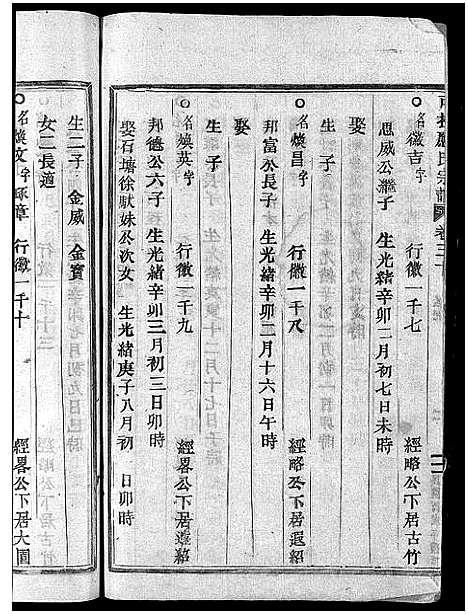 氏宗譜 卷三
名徽吉字 行徽一千七 經略公下居古竹
思威公繼子 生光緒辛卯二月初七日未時
娶
生子
名煥昌字 行徽一千八 經略公下居遐紹
邦富公長子 生光緒辛卯二月十六日午時
娶
生子
名煥英字 行徽一千九 經畧公下居遐紹
邦德公六子 生光緒辛卯三月初三日卯時
娶石塘徐馱妹公次女 生光緒庚子八月初 日卯時
生二子 金威 金寶
女二 長適
名煥文字琢章 行徽一千十 經畧公下居大園